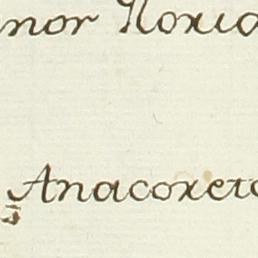 nor Noxia
Anacoreto